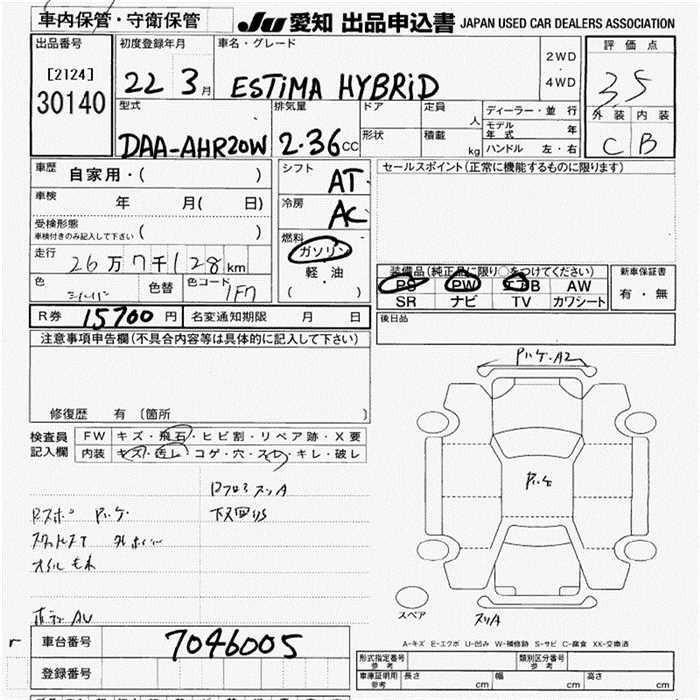 車内保管・守衛保管
JU 愛知 出品申込書 JAPAN USED CAR DEALERS ASSOCIATION
出品番号
[2124]
30140
初度登録年月
22 3月
車名・グレード
ESTIMA HYBRID
2WD
・
4WD
評価点
35
外装 内装
C B
型式
DAA-AHR20W
排気量
2.36cc
ドア
形状
定員 人
積載 kg
ディーラー・並行
モデル年式 年
ハンドル 左・右
車歴
自家用・( )
車検 年 月( 日)
受検形態
車検付きのみ記入して下さい ( )
走行
26万7千128km
色
シルバー
色替
色コード
1F7
シフト
AT
冷房
AC
燃料
ガソリン
軽・油
( )
セールスポイント(正常に機能するものに限ります)
装備品(純正品に限り○をつけてください)
PS PW エアB AW
SR ナビ TV カワシート
新車保証書
有・無
後日品
R券 15700円
名変通知期限 月 日
注意事項申告欄(不具合内容等は具体的に記入して下さい)
修復歴 有〔箇所 〕
検査員
記入欄
FW キズ・飛石・ヒビ割・リペア跡・X要
内装 キズ・汚レ・コゲ・穴・スレ・キレ・破レ
オイルモレ
ボディAU
スリA
車台番号 7046005
登録番号
ハゲ・A2
ハゲ
スペア
スリA
A-キズ E-エクボ U-凹み W-補修跡 S-サビ C-腐食 XX-交換済
形式指定番号
参考
類別区分番号
参考
車庫証明用
参考
長さ cm
幅 cm
高さ cm